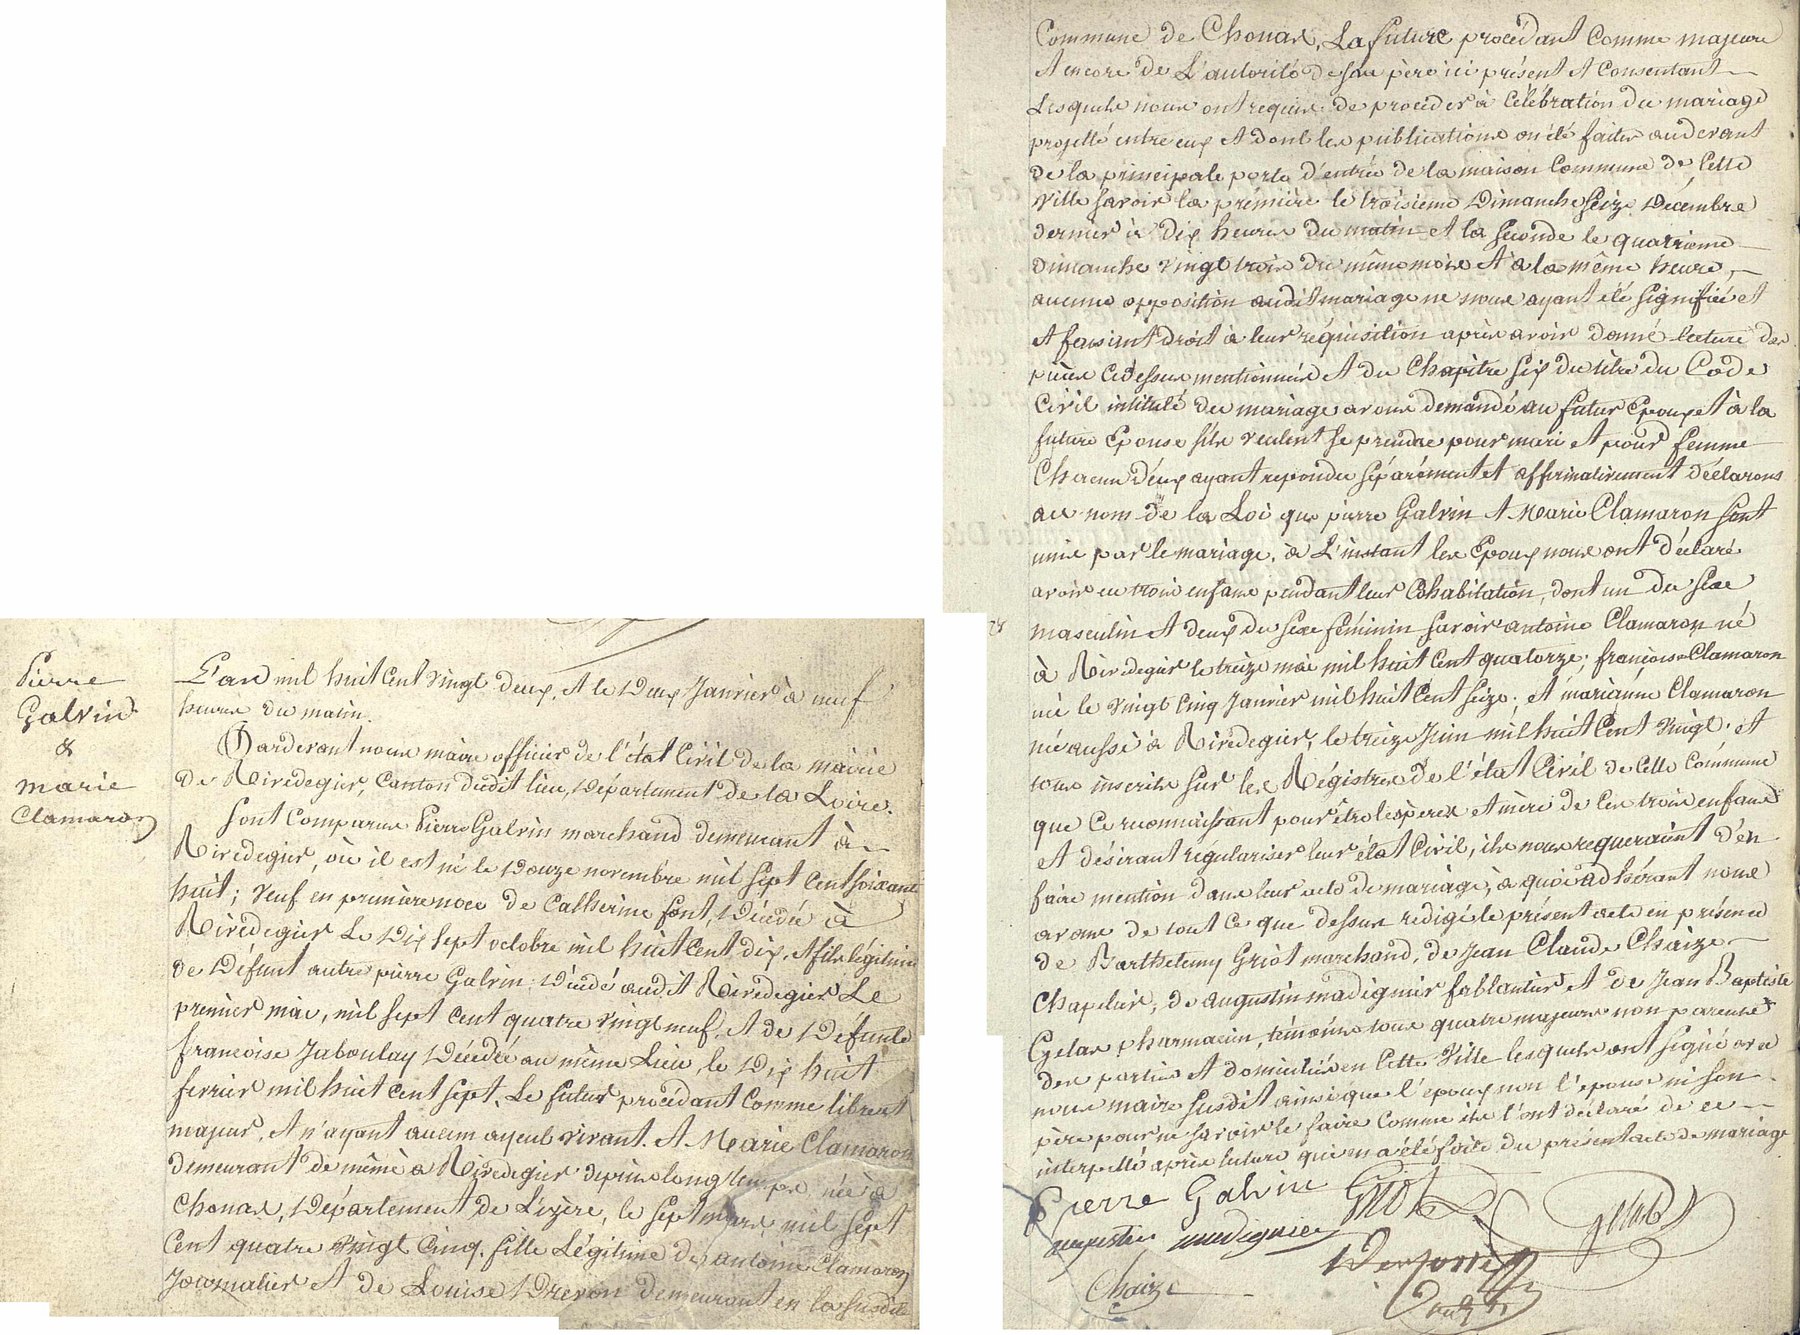 Pierre
Galvin
&
Marie
Clamaron
L'an mil huit cent vingt deux, et le Deux Janvier à neuf
heures du matin.
Pardevant nous maire officier de l'état Civil de la mairie
de Rivedegier, Canton dudit lieu, Département de la Loire.
Sont Comparus Pierre Galvin marchand demeurant à
Rivedegier, où il est né le Douze novembre mil sept cent soixante
huit; veuf en première noce de Catherine font, Décédée à
Rivedegier Le Dix sept octobre mil huit cent dix, et fils légitime
de Défunt autre pierre Galvin, Décédé audit Rivedegier Le
premier mai, mil sept cent quatre vingt neuf, et de Défunte
françoise Jaboulay Décédée au même Lieu, le Dix huit
fevrier mil huit cent sept, Le futur procédant Comme libre et
majeur, et n'ayant aucun ayeul vivant. Et Marie Clamaron
demeurant de même à Rivedegier depuis longtemps née à
Chonas, Département de L'izère, le sept mars, mil sept
Cent quatre vingt Cinq, fille Légitime de antoine Clamaron
Journalier et de Louise Drevon demeurant en la susdite
Commune de Chonas, La future procédant Comme majeure
et encore de L'autorité de son père ici présent et Consentant
Lesquels nous ont requis de proceder à Célébration du mariage
projetté entre eux et dont les publications on été faites au devant
de la principale porte d'entrée de la maison Commune de Cette
ville savoir la première le troisieme Dimanche Seize Décembre
dernier à dix heures du matin et la seconde le quatrieme
dimanche vingt trois du même mois et à la même heure,
aucune opposition audit mariage ne nous ayant été signifiée et
et faisant droit à leur réquisition après avoir donné lecture des
pièces Cidessus mentionnées et du Chapitre six du titre du Code
Civil intitulé du mariage avons demandé au futur Epoux et à la
future Epouse s'ils veulent se prendre pour mari et pour femme
Chacun d'eux ayant repondu séparément et affirmativement Déclarons
au nom de la Loi que pierre Galvin et Marie Clamaron sont
unis par le mariage. à L'instant les Epoux nous ont déclaré
avoir eu trois enfans pendant leur Cohabitation, dont un du sexe
masculin et deux du sexe féminin savoir antoine Clamaron né
à Rivedegier le treize mai mil huit Cent quatorze; françoise Clamaron
née le vingt Cinq Janvier mil huit Cent seize; et marianne Clamaron
née aussi à Rivedegier, le treize Juin mil huit Cent vingt. et
tous inscrits sur les Régistres de l'état Civil de Cette Commune
que Ce reconnaissant pour être les pères et mère de Ces trois enfans
et désirant regulariser leur état Civil, ils nous requeraient d'en
faire mention dans leur acte de mariage, à quoi adhérant nous
avons de tout Ce que dessus redigé le présent acte en présence
de Barthelemy Griot marchand, de Jean Claude Chaize
Chapelier, de augustin madignier fablantier et de Jean Baptiste
pharmacien, témoins tous quatre majeurs non parents
des parties et domiciliés en Cette Ville lesquels ont signé avec
nous maire susdit ainsi que l'époux non l'épouse ni son
père pour ne savoir le faire Comme ils l'ont déclaré de ce
interpellé après lecture qui en a été faite du présent acte de mariage
Pierre Galvin Griot
augustin madignier
Chaize